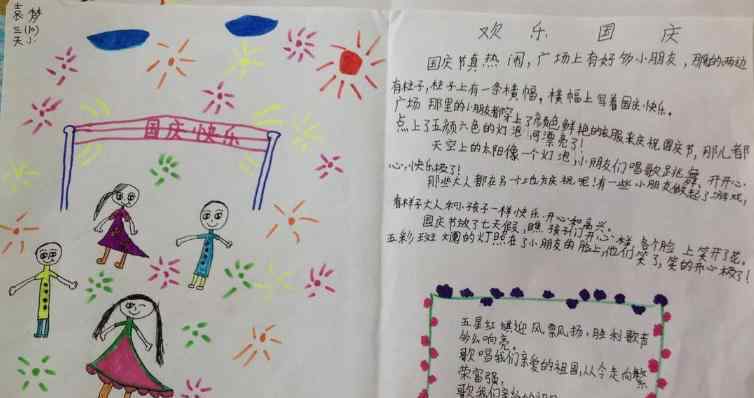 袁梦
三(10)
天小
国庆快乐
欢乐国庆
国庆节真热闹,广场上有好多小朋友,那的两边
有柱子,柱子上有一条横幅,横幅上写着国庆快乐。
广场那里的小朋友都穿上了颜色鲜艳的衣服来庆祝国庆节,那儿都
点上了五颜六色的灯泡,可漂亮了!
天空上的太阳像一个灯泡,小朋友们唱歌跳舞,开开心
心,快乐极了!
那些大人都在另个地方庆祝呢!有一些小朋友做起了游戏,
有样子大人和小孩子一样快乐、开心和高兴。
国庆节放了七天假,瞧,孩子们开心样,各个脸上笑开了花。
五彩斑斓的灯照在了小朋友的脸上,他们笑了,笑的开心极了!
五星红旗迎风飘扬,胜利歌声
多么响亮。
歌唱我们亲爱的祖国,从今走向繁
荣富强。
歌我们亲